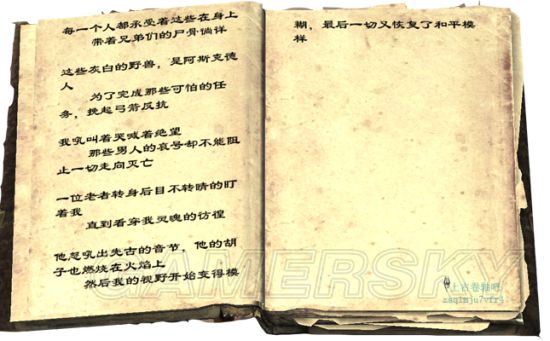 每一个人都承受着这些在身上
带着兄弟们的尸骨徜徉
这些灰白的野兽，是阿斯克德
人
为了完成那些可怕的任
务，挽起弓箭反抗
我吼叫着哭喊着绝望
那些男人的哀号却不能阻
止一切走向灭亡
一位老者转身后目不转睛的盯
着我
直到看穿我灵魂的彷徨
他怒吼出先古的音节，他的胡
子也燃烧在火焰上
然后我的视野开始变得模
糊，最后一切又恢复了和平模
样
GAMERSKY
上古卷轴吧
zaqimju7vfr4